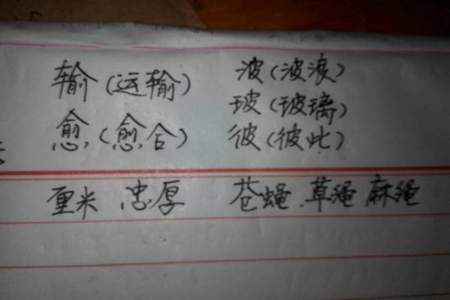 输(运输) 波(波浪)
玻(玻璃)
愈,(愈,合) 彼(彼此)
厘米 忠厚 苍蝇.草绳 麻绳